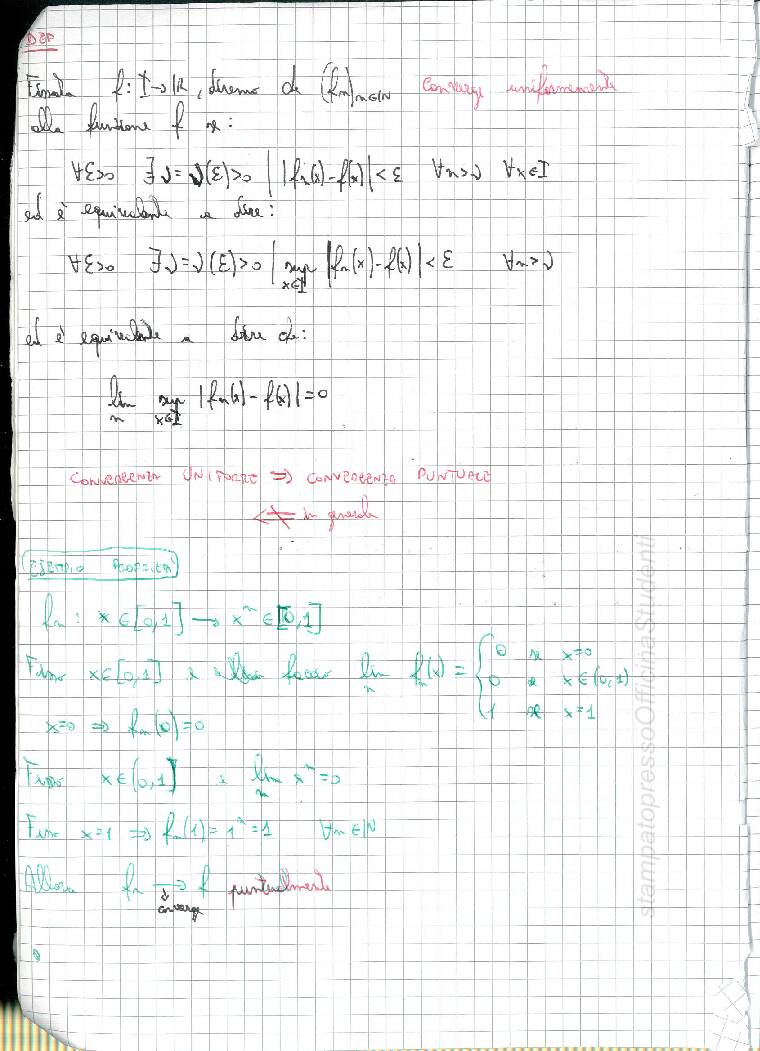 DEF
Fissata f: I → ℝ, diremo che (fₙ)ₙ∈ℕ converge uniformemente
alla funzione f se:
∀ε>0 ∃ν=ν(ε)>0 | |fₙ(x)-f(x)|<ε ∀n>ν ∀x∈I
ed è equivalente a dire:
∀ε>0 ∃ν=ν(ε)>0 | sup x∈I |fₙ(x)-f(x)|<ε ∀n>ν
ed è equivalente a dire che:
lim n sup x∈I |fₙ(x)-f(x)|=0
CONVERGENZA UNIFORME ⇒ CONVERGENZA PUNTUALE
⇍ in generale
ESEMPIO PROPRIETÀ
fₙ: x∈[0,1] → xⁿ∈[0,1]
Fisso x∈[0,1] e allora faccio lim n fₙ(x) = { 0 se x=0
0 se x∈(0,1)
1 se x=1
x=0 ⇒ fₙ(0)=0
Fisso x∈(0,1] e lim n xⁿ=0
Fisso x=1 ⇒ fₙ(1)=1ⁿ=1 ∀n∈ℕ
Allora fₙ → f puntualmente
converge
stampatopressoOfficinaStudenti